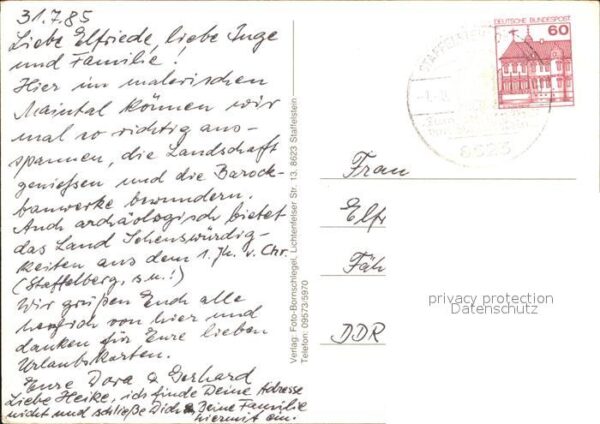 31.7.85
Liebe Elfriede, liebe Inge
und Familie!
Hier im malerischen
Maintal können wir
mal so richtig aus-
spannen, die Landschaft
genießen und die Barock-
bauwerke bewundern.
Auch archäologisch bietet
das Land Sehenswürdig-
keiten aus dem 1. Jh. v. Chr.
(Staffelberg, s.u.!)
Wir grüßen Euch alle
herzlich von hier und
danken für Eure lieben
Urlaubskarten.
Eure Dora & Gerhard
Liebe Heike, ich finde Deine Adresse
nicht und schließe Dich & Deine Familie
hiermit ein.
Verlag: Foto-Bornschlegel, Lichtenfelser Str. 13, 8623 Staffelstein
Telefon: 09573/5970
DEUTSCHE BUNDESPOST
60
STAFFELSTEIN
8623
Frau
Elfr
Fäh
DDR
privacy protection
Datenschutz